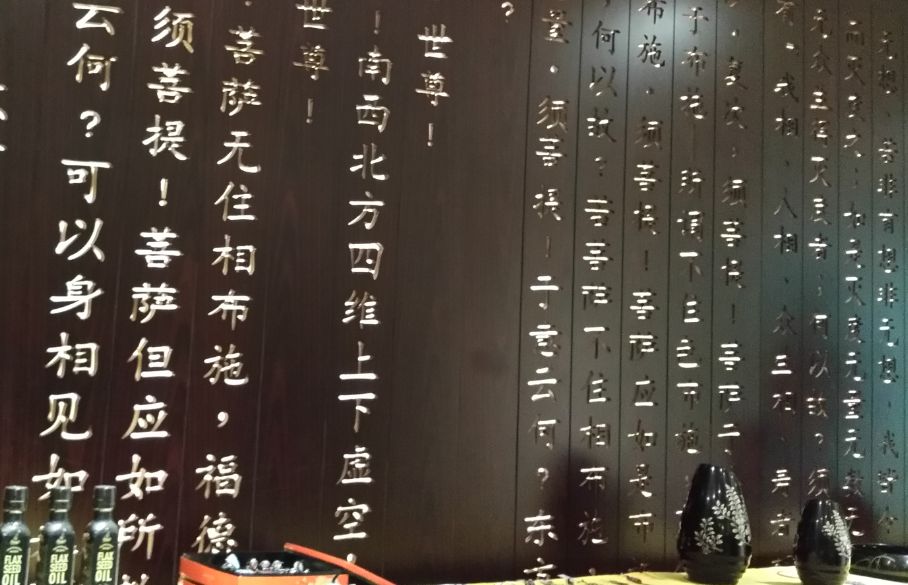 无想、若非有想非无想，我皆令
而灭度之。如是灭度无量无数无
无众生得灭度者。何以故？须
有我相、人相、众生相、寿者
复次，须菩提！菩萨于
于布施，所谓不住色布施
布施。须菩提！菩萨应如是布
何以故？若菩萨不住相布施，
量。须菩提！于意云何？东方
？
世尊！
！南西北方四维上下虚空
世尊！
菩萨无住相布施，福德
须菩提！菩萨但应如所
云何？可以身相见如
FLAX
SEED
OIL
FLAX
SEED
OIL
FLAX
SEED
OIL